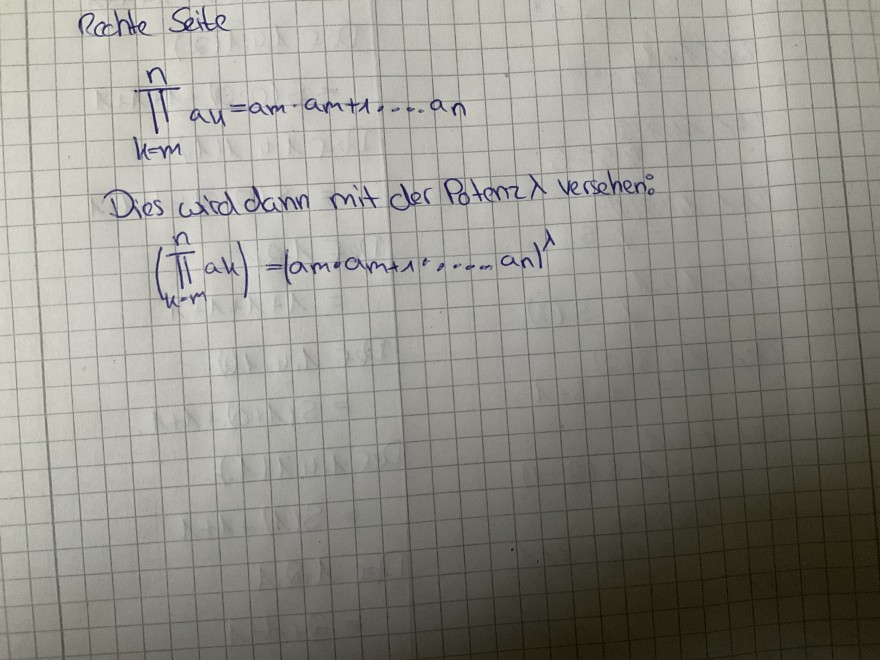 Rechte Seite
n
∏ ak = am · am+1 · .... an
k=m
Dies wird dann mit der Potenz λ versehen:
n
(∏ ak) = (am · am+1 · . .... an)^λ
k=m